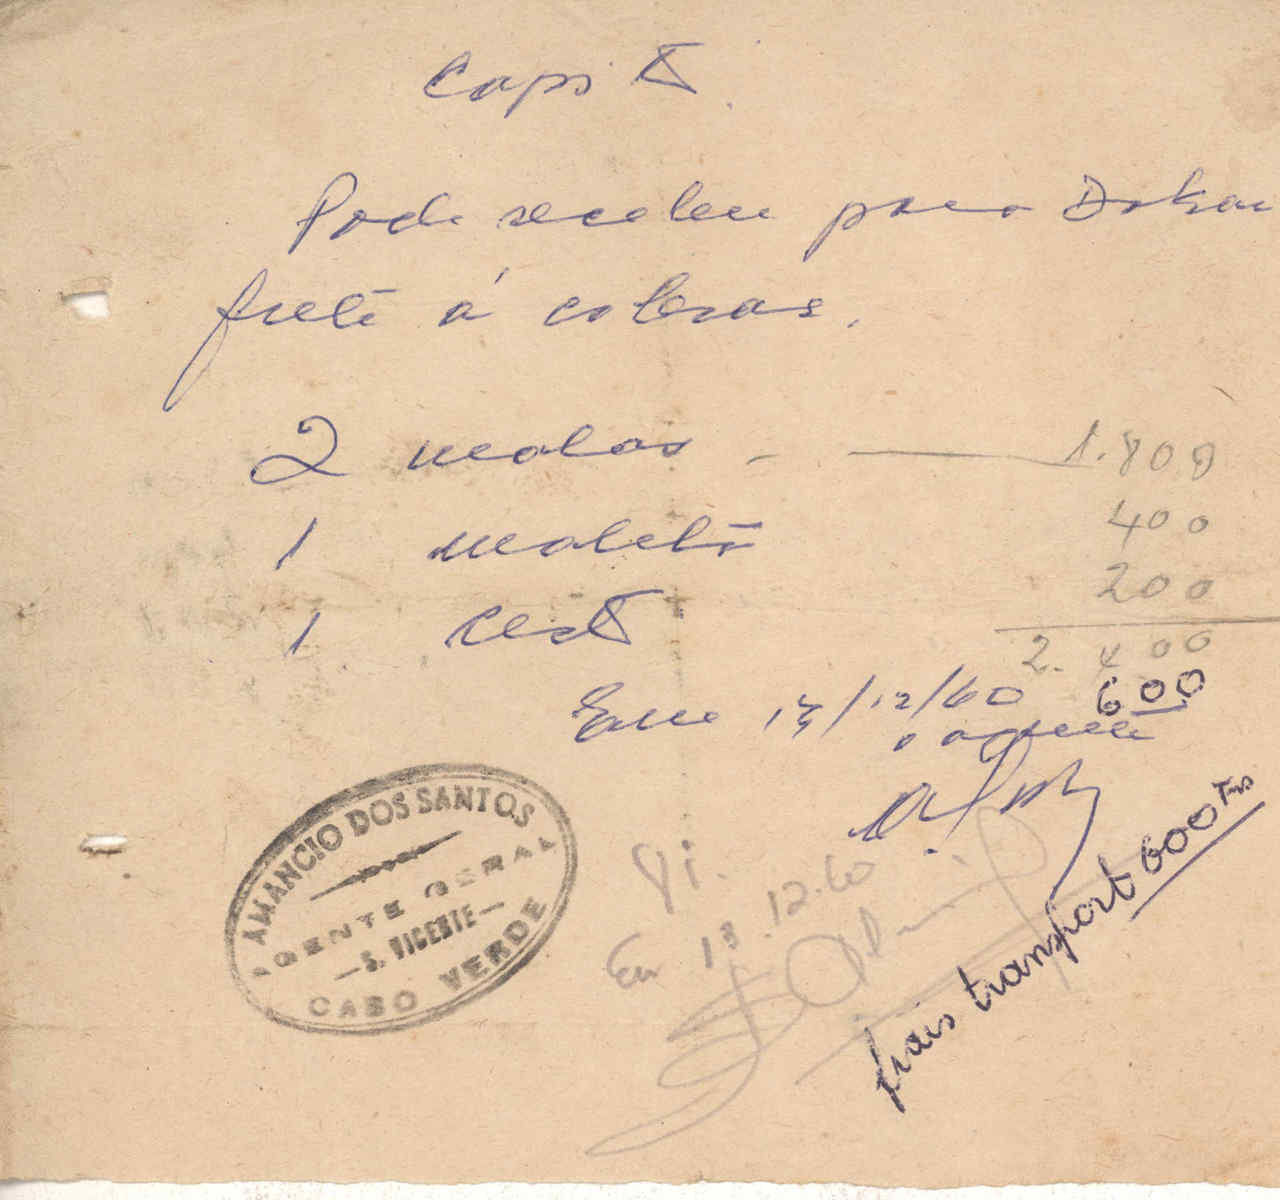 Capt
Pode receber para Dakar
frete á cobrar.
2 malas - 1.800
1 maleta 400
1 cesto 200
2.400
Em 13/12/60 600
o agente
AMANCIO DOS SANTOS
AGENTE GERAL
- S. VICENTE -
CABO VERDE
Vi.
Em 13.12.60
frais transport 600 frs